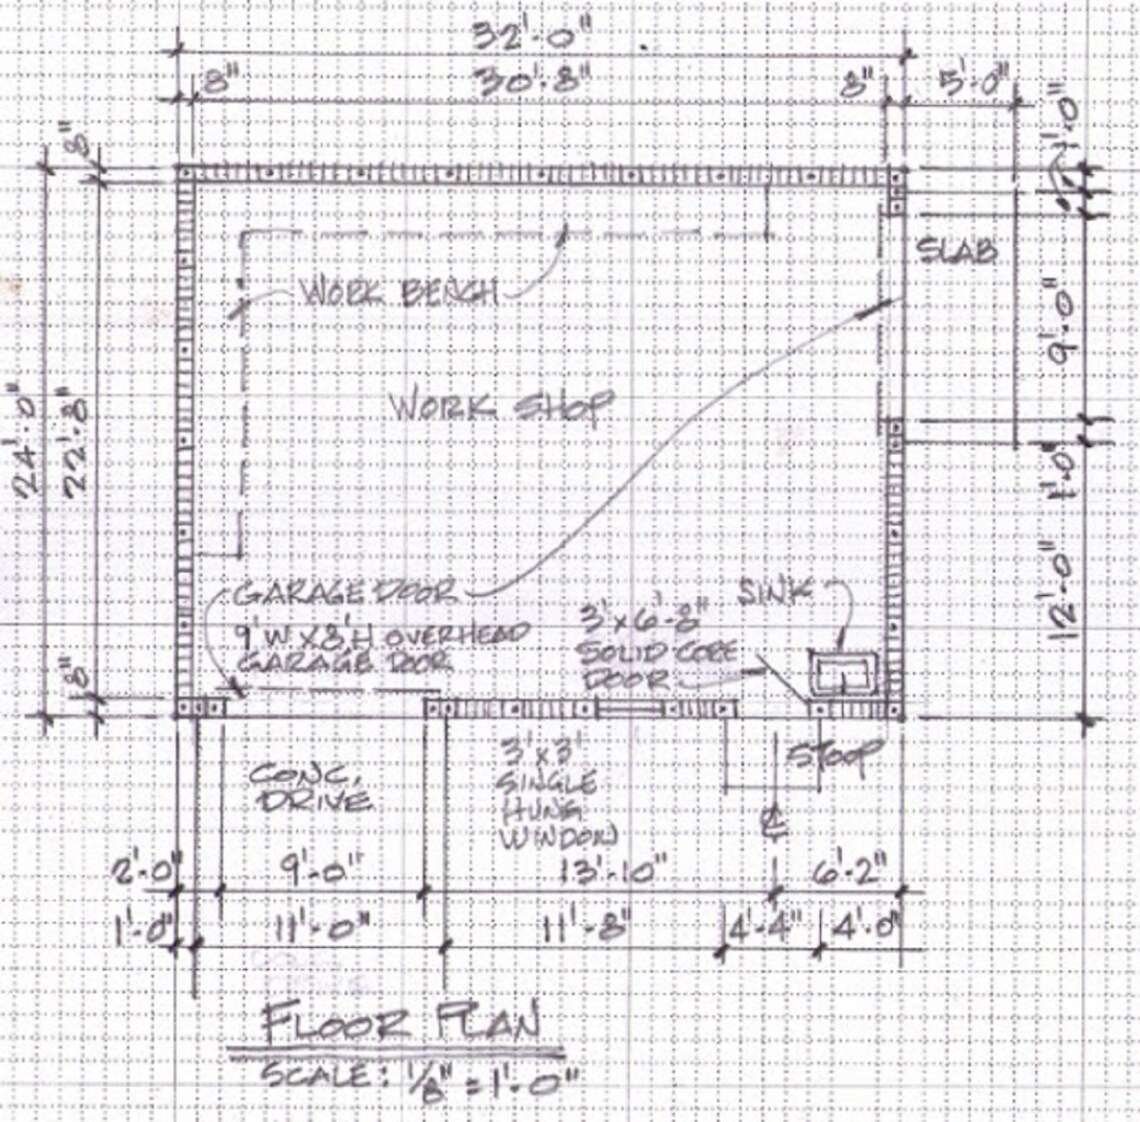 32'-0"
8" 30'-8" 8" 5'-0"
8"
1'-0"
SLAB
WORK BENCH
9'-0"
WORK SHOP
24'-0"
22'-8"
1'-0"
GARAGE DOOR
9'W X 8'H OVERHEAD
GARAGE DOOR
3'x6'-8"
SOLID CORE
DOOR
SINK
12'-0"
8"
CONC.
DRIVE
3'x3'
SINGLE
HUNG
WINDOW
STOOP
℄
2'-0" 9'-0" 13'-10" 6'-2"
1'-0" 11'-0" 11'-8" 4'-4" 4'-0"
FLOOR PLAN
SCALE: 1/8" = 1'-0"